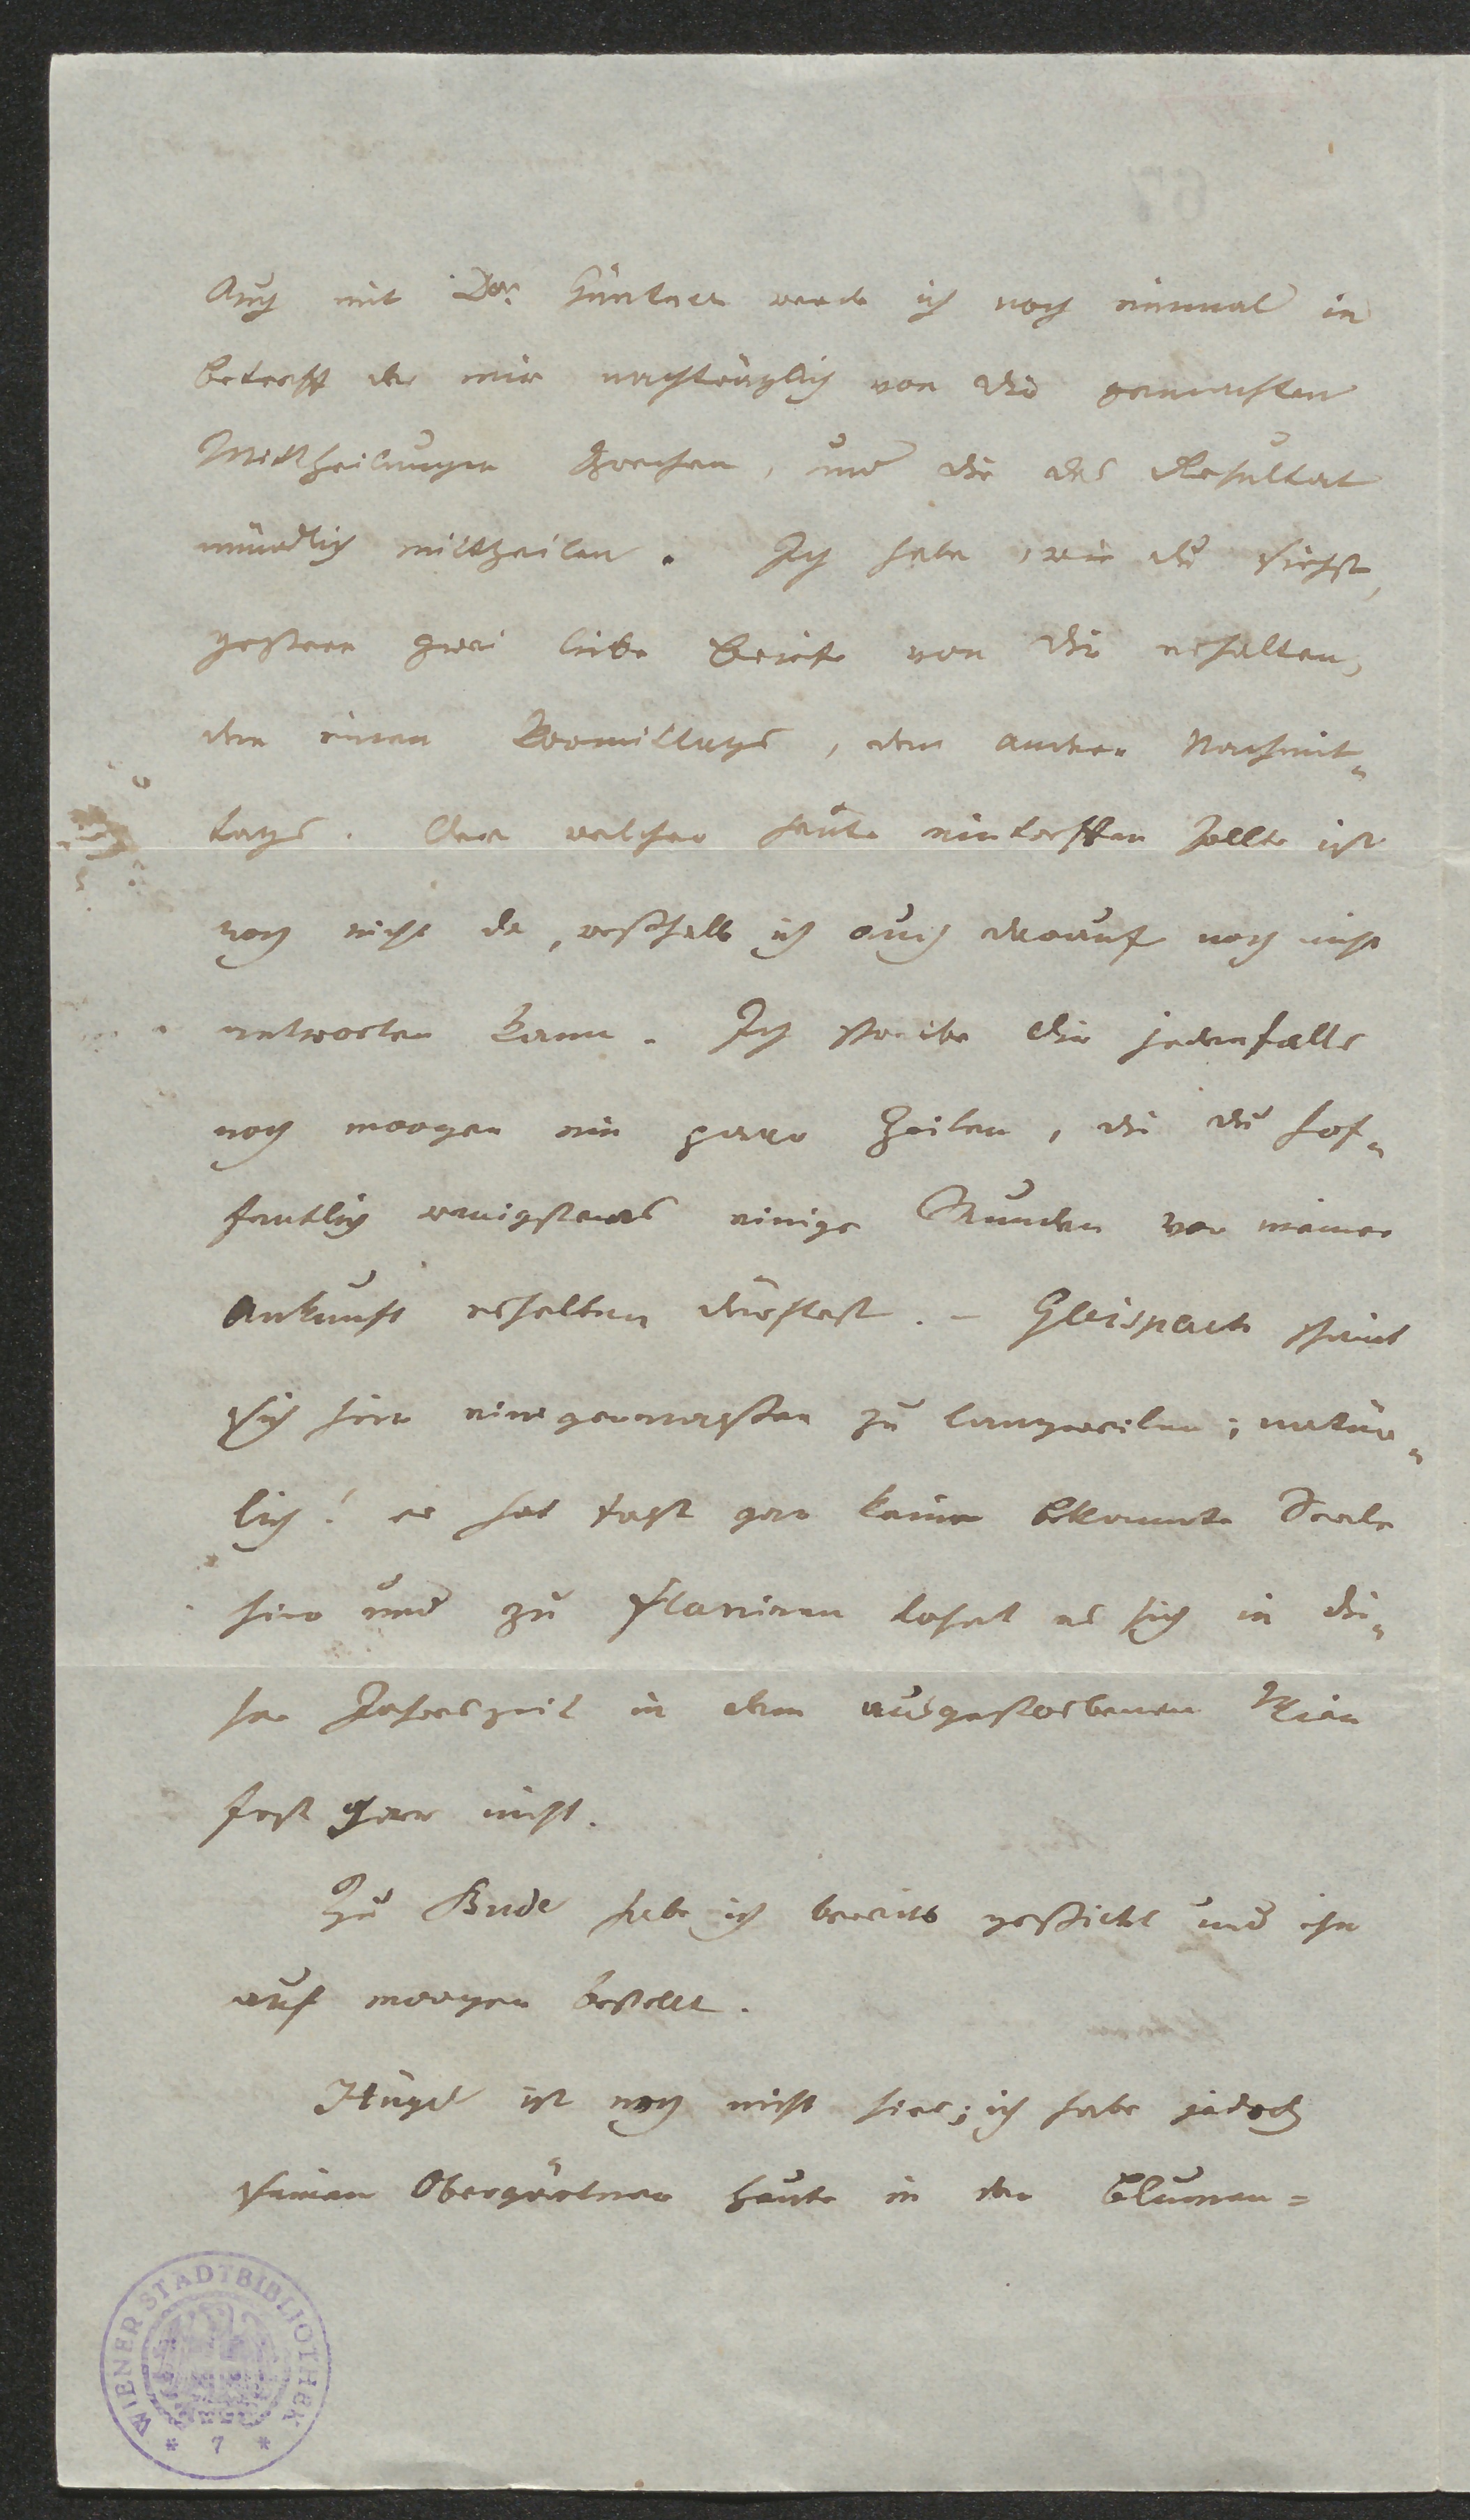 Auch mit Dor. Güntner werde ich noch einmal in
Betreff der mir nachträglich von dir gemachten
Mittheilungen sprechen, und dir das Resultat
mündlich mittheilen. Ich habe, wie du siehst,
gestern zwei liebe Briefe von dir erhalten,
den einen Vormittags, den andern Nachmit-
tags. Der welcher heute eintreffen sollte ist
noch nicht da, weßhalb ich auch darauf noch nicht
antworten kann. Ich schreibe dir jedenfalls
noch morgen ein paar Zeilen, die du hof-
fentlich wenigstens einige Stunden vor meiner
Ankunft erhalten dürftest. – Gleispach scheint
sich hier einigermaßen zu langweilen; natür-
lich! er hat fast gar keine bekannte Seele
hier und zu flaniren lohnt es sich in die-
ser Jahreszeit in dem ausgestorbenen Wien
fast gar nicht.
Zu Bude habe ich bereits geschickt und ihn
auf morgen bestellt.
Hügel ist noch nicht hier; ich habe jedoch
seinen Obergärtner heute in der Blumen=
WIENER STADTBIBLIOTHEK
* 7 *